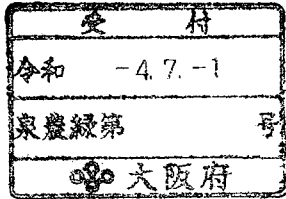 受付
令和 -4.7.-1
泉農緑第 号
大阪府